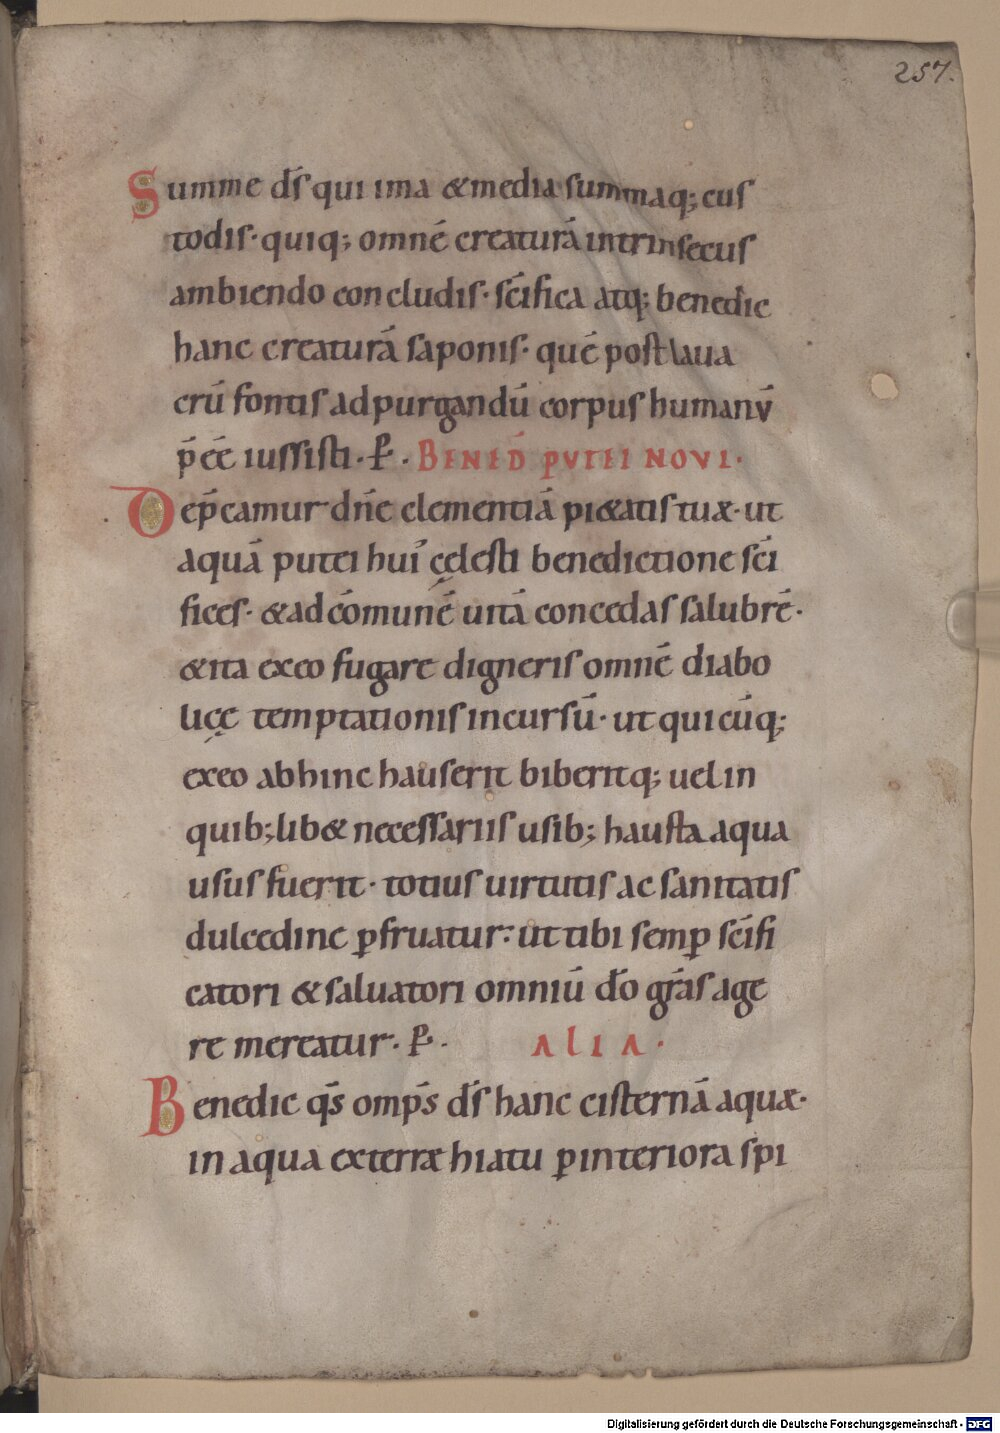 257.
Summe d̅s qui ima & media summaq; cus
todis · quiq; omne̅ creatura̅ intrinsecus
ambiendo concludis · sc̅ifica atq; benedic
hanc creatura̅ saponis · que̅ post laua
cru̅ fontis ad purgandu̅ corpus humanv̅
p̅ ee̅ iussisti · P̅ · BENED̅ PVTEI NOVI ·
Dep̅camur dn̅e clementia̅ pi&atis tuæ · ut
aqua̅ putei hui᾿ cęlesti benedictione sc̅i
fices · & ad co̅mune̅ uita̅ concedas salubre̅ ·
& ita ex eo fugare digneris omne̅ diabo
licę temptationis incursu̅ · ut quicu̅q;
ex eo abhinc hauserit biberitq; uel in
quib; lib& necessariis usib; hausta aqua
usus fuerit · totius uirtutis ac sanitatis
dulcedine ꝑfruatur · ut tibi semꝑ sc̅ifi
catori & saluatori omniu̅ d̅o gr̅as age
re mereatur · P̅ · ALIA ·
Benedic q̅s omp̅s d̅s hanc cisterna̅ aquæ ·
in aqua ex terræ hiatu ꝑ interiora spi
Digitalisierung gefördert durch die Deutsche Forschungsgemeinschaft - DFG